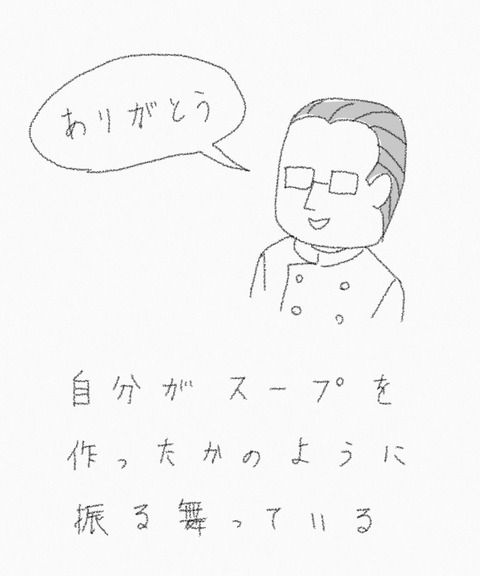 ありがとう
自分がスープを
作ったかのように
振る舞っている